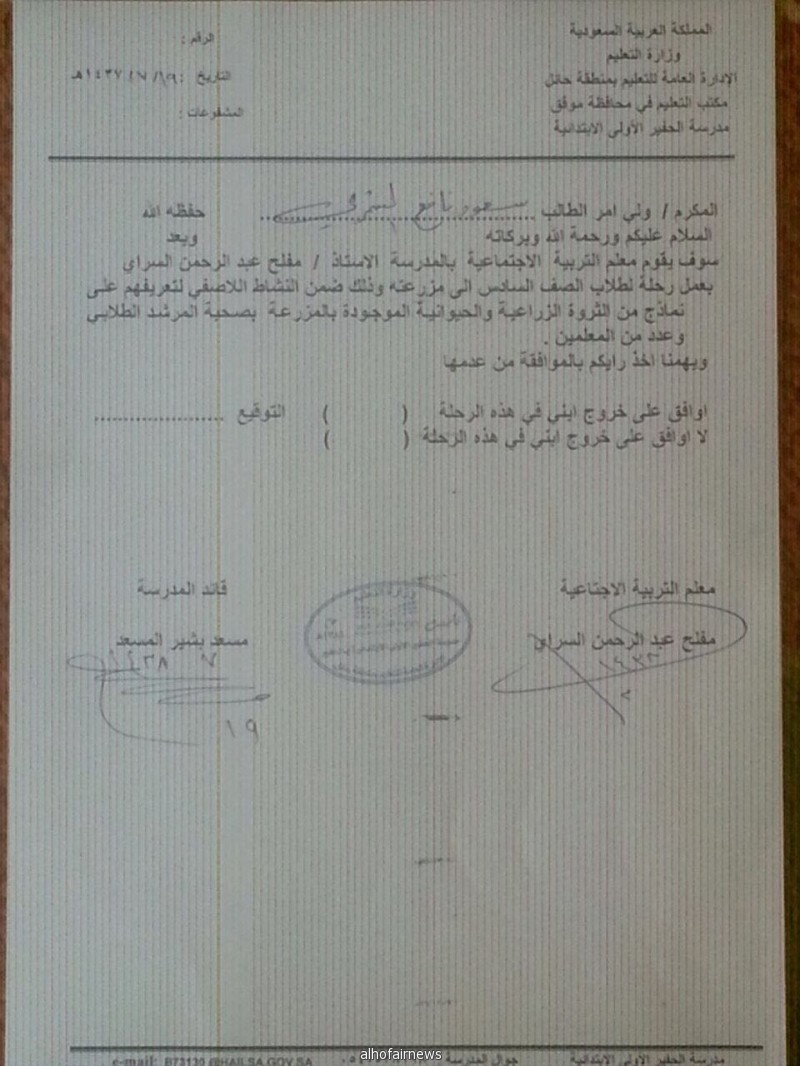 المملكة العربية السعودية
وزارة التعليم
الإدارة العامة للتعليم بمنطقة حائل
مكتب التعليم في محافظة موقق
مدرسة الحفير الأولى الابتدائية
الرقم :
التاريخ : ١٩/ ٧/ ١٤٣٧هـ
المشفوعات :
المكرم / ولي امر الطالب سعود نافع حفظه الله
السلام عليكم ورحمة الله وبركاته وبعد
سوف يقوم معلم التربية الاجتماعية بالمدرسة الاستاذ / مفلح عبد الرحمن السراي
بعمل رحلة لطلاب الصف السادس الى مزرعته وذلك ضمن النشاط اللاصفي لتعريفهم على
نماذج من الثروة الزراعية والحيوانية الموجودة بالمزرعة بصحبة المرشد الطلابي
وعدد من المعلمين .
ويهمنا اخذ رايكم بالموافقة من عدمها
اوافق على خروج ابني في هذه الرحلة ( ) التوقيع ......................
لا اوافق على خروج ابني في هذه الرحلة ( )
معلم التربية الاجتاعية
مفلح عبد الرحمن السراي
قائد المدرسة
مسعد بشير المسعد
١٤٣٨ ٧
١٩
مدرسة الحفير الأولى الابتدائية جوال المدرسة e-mail: B73130 @HAIL.SA.GOV.SA
alhofairnews